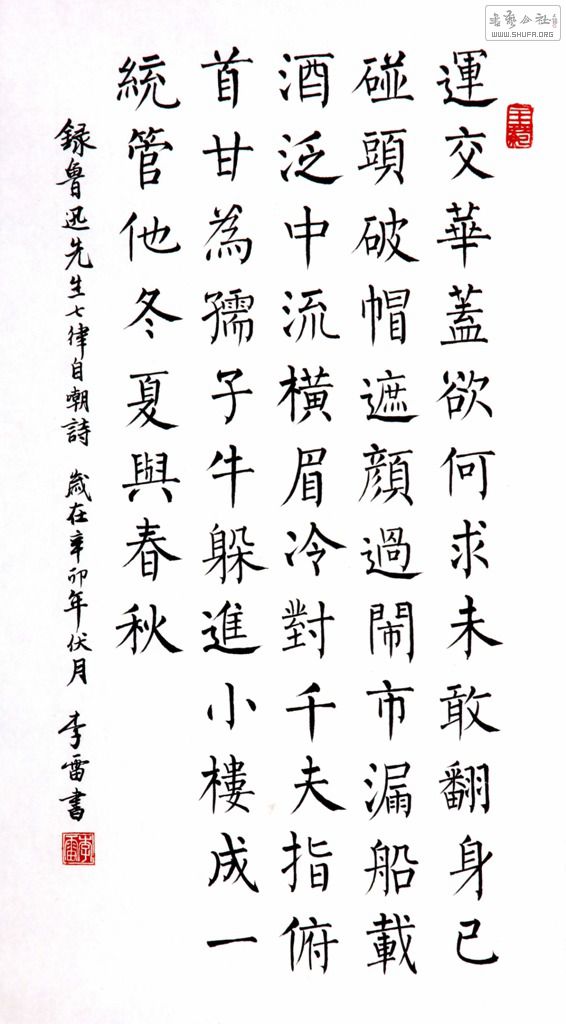 運交華蓋欲何求未敢翻身已
碰頭破帽遮顔過鬧市漏船載
酒泛中流橫眉冷對千夫指俯
首甘為孺子牛躲進小樓成一
統管他冬夏與春秋
録魯迅先生七律自嘲詩 歲在辛卯年伏月 李雷書
李雷
WWW.SHUFA.ORG